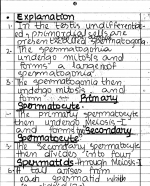 • Explanation
1- In the testis undifferentiat-
ed primordial cells are
present called spermatogonia.
2- The spermatogonia
undergo mitosis and
forms a large no. of
spermatogonia.
3- The spermatogonia then
undergo mitosis and
form Primary
Spermatocyte.
4- The primary spermatocyte
then undergo Meiosis-I
and forms Secondary
Spermatocyte.
5- The secondary spermatocyte
then divides into four
Spermatids through Meiosis
6- A tail arises from
each spermatid while